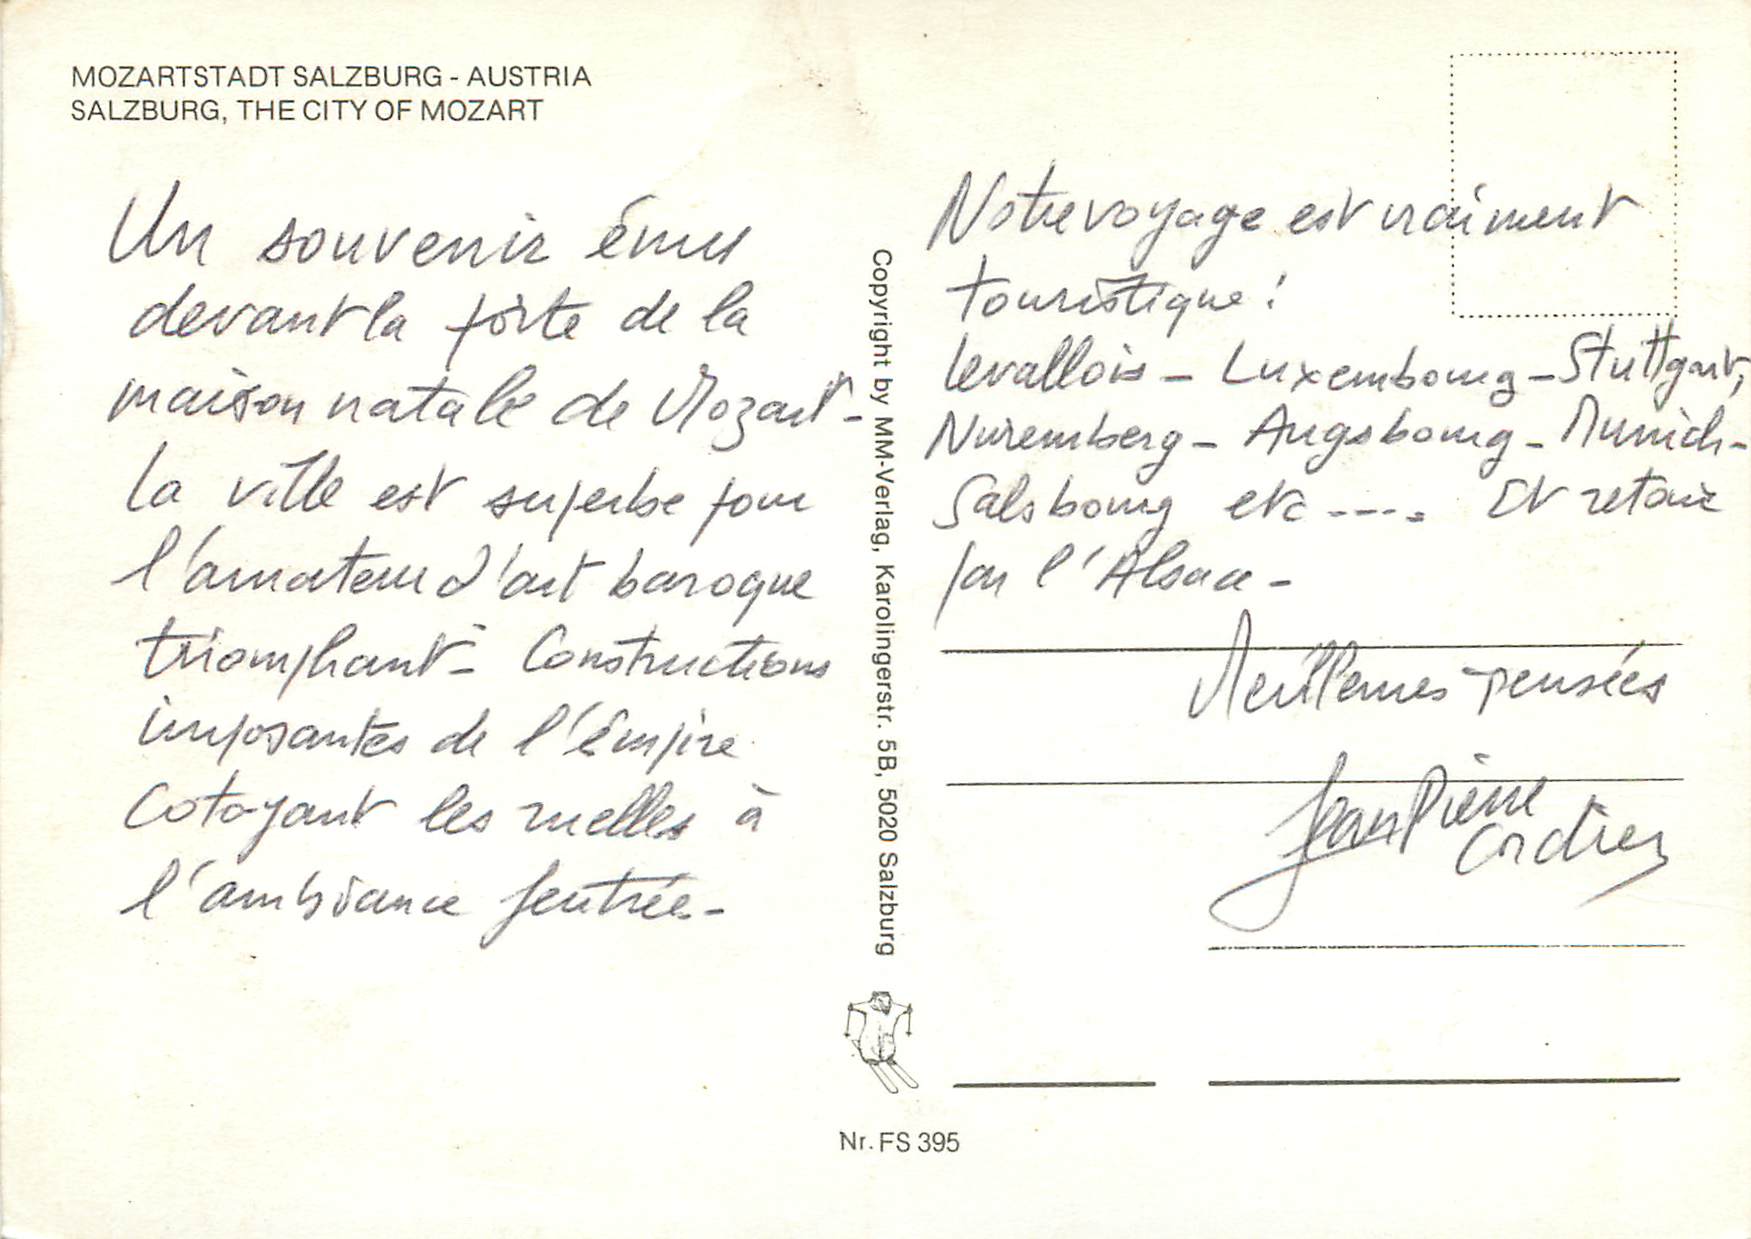 MOZARTSTADT SALZBURG - AUSTRIA
SALZBURG, THE CITY OF MOZART
Un souvenir ému
devant la porte de la
maison natale de Mozart -
La ville est superbe pour
l'amateur d'art baroque
triomphant - Constructions
imposantes de l'Empire
cotoyant les ruelles à
l'ambiance feutrée -
Copyright by MM-Verlag, Karolingerstr. 5B, 5020 Salzburg
Nr. FS 395
Notre voyage est vraiment
touristique !
Levallois - Luxembourg - Stuttgart,
Nuremberg - Augsbourg - Munich -
Salsbourg etc ----. Et retour
par l'Alsace -
Meilleures pensées
Jean Pierre
Cordier